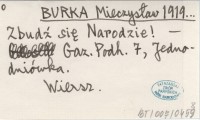 BURKA Mieczysław 1919...
Zbudź się Narodzie! –
Gaz. Podh. 7, Jedno-
dniówka.
Wiersz.